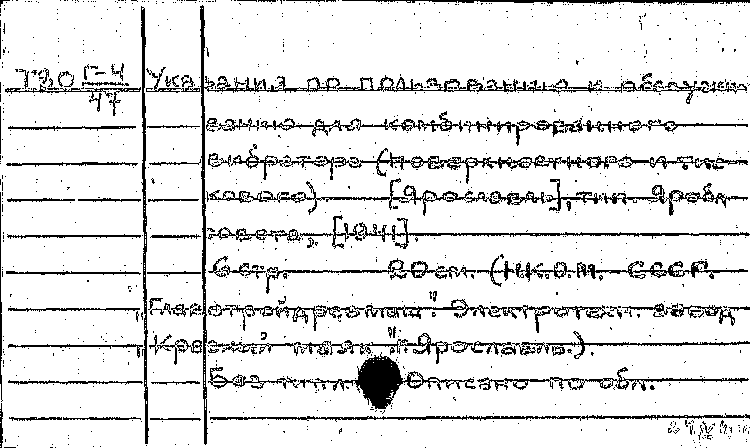 Т80 Г-4/47 Указания по пользованию и обслужи
ванию для комбинированного
вибратора (поверхностного и тис
кового). [Ярославль], тип. Яробл
совета, [1941].
6 стр. 20 см. (Н.К.О.М. СССР.
"Главстройдормаш". Электротехн. завод
"Красный маяк" Ярославль.).
Без титл. Описано по обл.